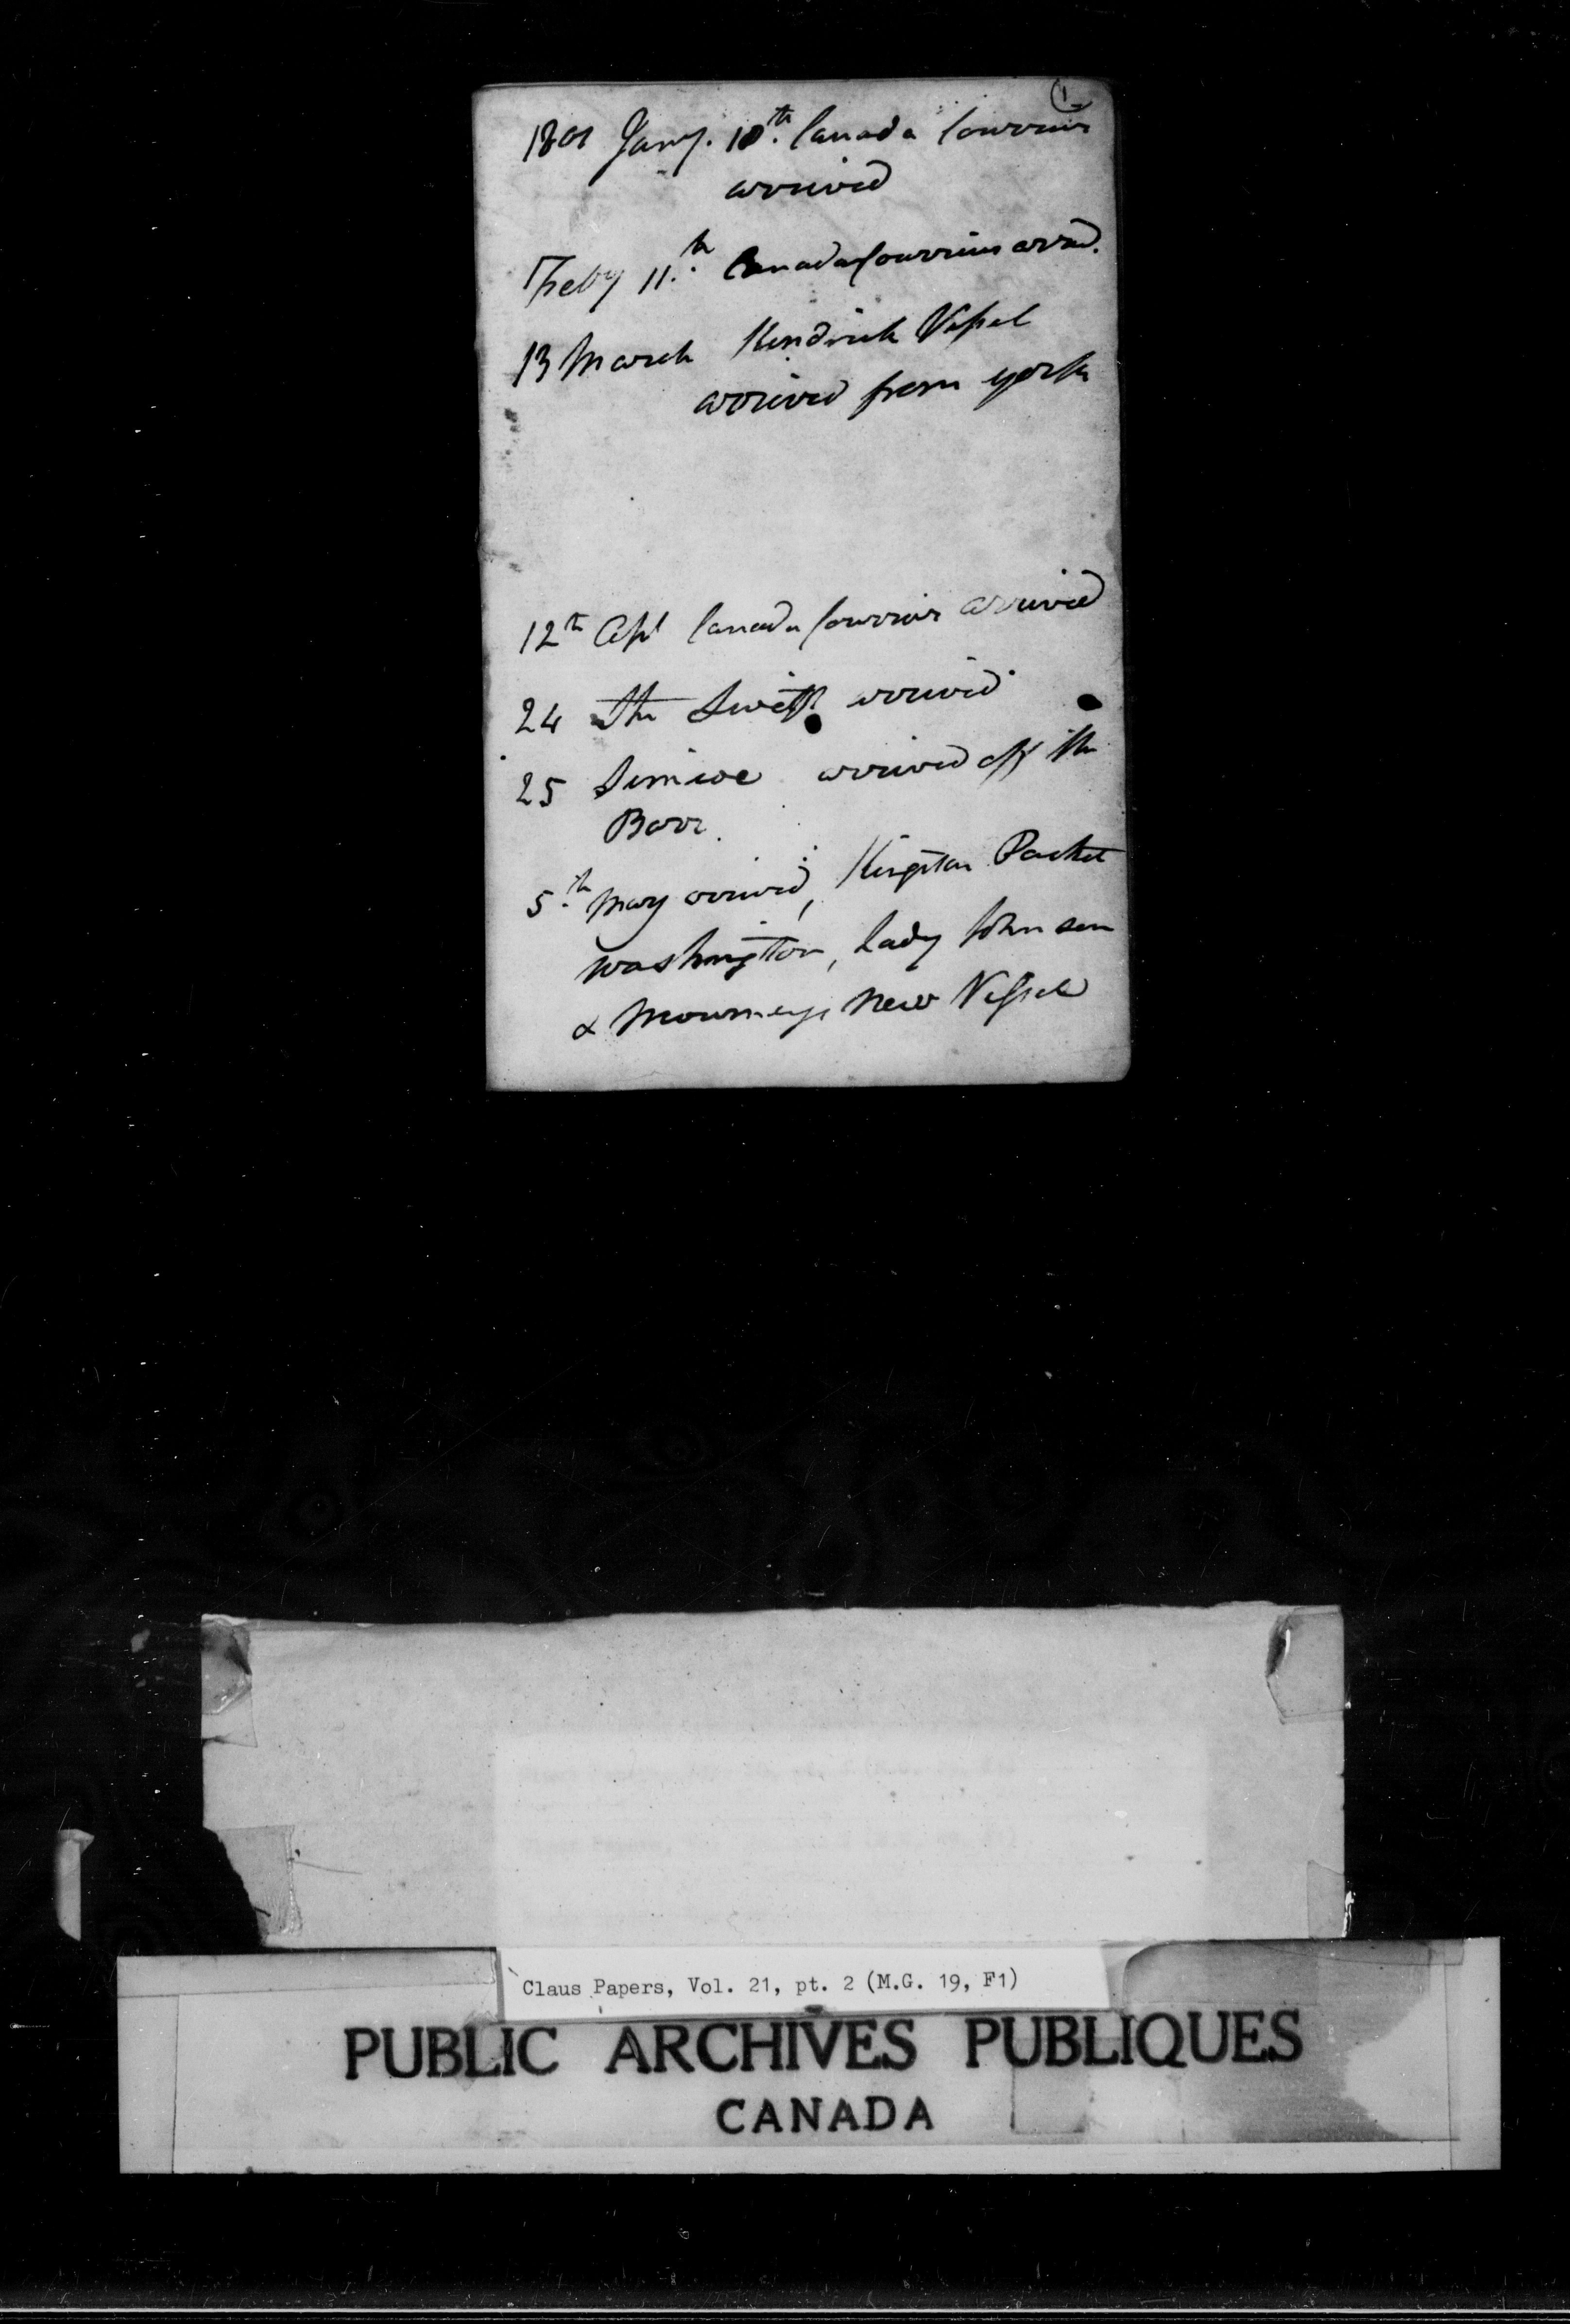 1
1801 Jany. 10th. Canada Courrier
arrived
Feby 11.th Canada Courrier arrd.
13 March Kendrick Vessel
arrived from york
12th Apl Canada Courrier arrived
24 The Swift arrived
25 Simcoe arrived off the
Barr.
5.th May arrived, Kingston Packet
Washington, Lady Johnson
& new Vessel
Claus Papers, Vol. 21, pt. 2 (M.G. 19, F1)
PUBLIC ARCHIVES PUBLIQUES
CANADA